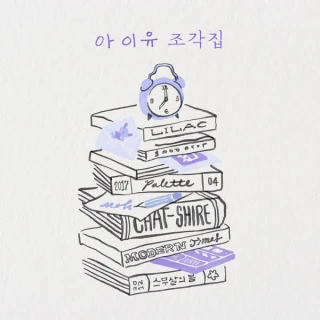 아이유 조각집
LILAC
2017 Palette 04
CHAT-SHIRE
MODERN TIMES
스무살의 봄